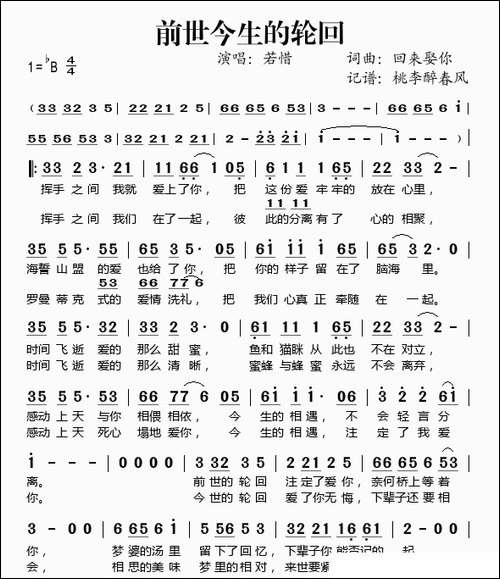 前世今生的轮回
演唱：若惜 词曲：回来娶你
1=♭B 4/4 记谱：桃李醉春风
（33 32 3 5 | 22 21 2 5 | 66 65 6 53 | 33 35 | 66 65 6 i |
55 56 53 | 32 21 2 | 2 - 23 21 | 1 - - - | 1 - - - ）|
‖: 33 2 3· 21 | 11 66 1 05 | 6 11 1 65 | 22 33 2 - |
挥手 之间 我就 爱上了你， 把 这份爱 牢牢的 放在 心里，
11 11
挥手 之间 我们 在了一起， 彼 此的分离有了 心的 相聚，
35 55· 55 | 65 35· 05 | 61 11 1 65 | 35 3·2 0 |
海誓 山盟 的爱 也给 了你， 把 你的 样子 留 在了 脑海 里。
53 66 77 6
罗曼 蒂克 式的 爱情 洗礼， 把 我们 心真正 牵随 在 一起。
35 55· 53 | 33 2 3 2 | 61 11 1 65 | 22 33 2 - |
时间 飞逝 爱的 那么 甜蜜， 鱼和 猫眯 从 此也 不在 对立，
时间 飞逝 爱的 那么 清晰， 蜜蜂 与蜂蜜 永远 不会 离弃，
感动 上天 与你 相偎 相依， 今 生的 相遇， 不 会 轻言 分
感动 上天 死心 塌地 爱你， 今 生的 相遇， 注 定了 我爱
i - - - | 0 0 0 0 | 3 32 3 5 | 2 21 2 5 | 66 65 6 53 |
离。 前世的 轮回 注定了 爱你， 奈何 桥上 等着
你。 今世的 轮回 爱了你 无悔， 下辈子 还要 相
3 - 0 0 | 6 65 6 i | 5 56 5 3 | 2 32 21 16 61 | 2 - - - |
你， 梦婆的 汤里 留下了 回忆， 下辈子 你
会， 相思的 美味 梦里的 相对， 来世要